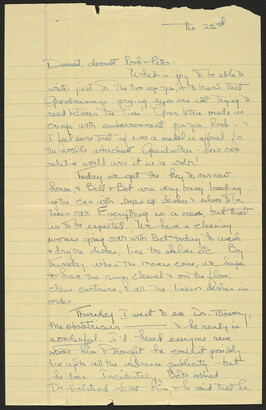 The 25th
Dearest, dearest Pook & Peter -
What a joy to be able to
write just to the two of you, & to know that
Grandmommy's prying eyes are not trying to
read between the lines! Your letters made us
cringe with embarrassment for you, Pook - &
I feel sure that if was a medal is offered for
the world's Grandmother - our own
would win it in a walk!
Today we get the key to our new
house & Bill & Bet are very busy loading
up the car with bags of dishes & silver to be
taken over. Everything is a mess but that
is to be expected. We have a cleaning
woman going over with Bet today to wash
& dry the dishes, line the shelves, etc. By
Thursday, when the movers come, we hope
to have the rugs cleaned & on the floor,
clean curtains, & all the linens & dishes in
order.
Thursday I went to see Dr. Mowery,
the obstetrician - & he really is
wonderful. I'd heard everyone rave
about him & thought he couldn't possibly
live up to all the advance publicity - but
he does. Incidentally, Bob asked
Dr. Halstead about him & he said that he